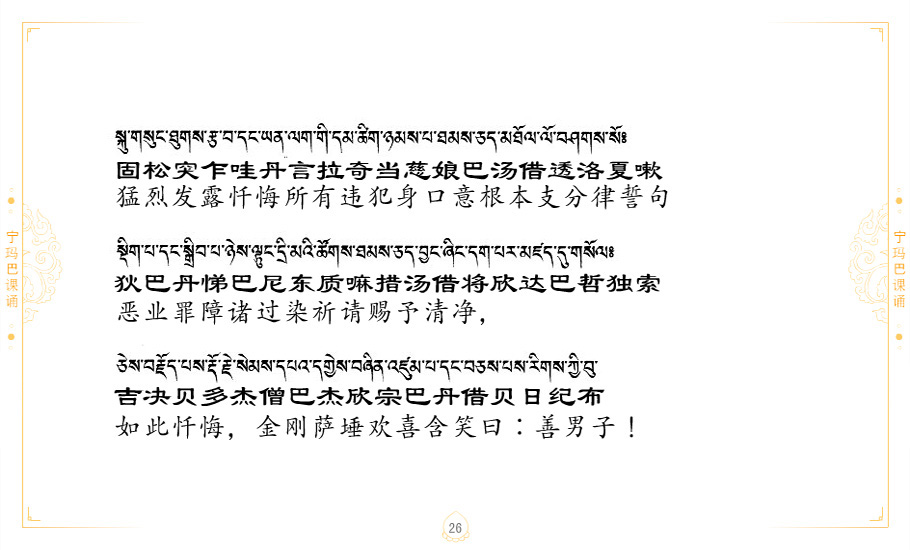 སྐུ་གསུང་ཐུགས་རྩ་བ་དང་ཡན་ལག་གི་དམ་ཚིག་ཉམས་པ་ཐམས་ཅད་མཐོལ་ལོ་བཤགས་སོ༔
固松突乍哇丹言拉奇当慈娘巴汤借透洛夏嗽
猛烈发露忏悔所有违犯身口意根本支分律誓句
སྡིག་པ་དང་སྒྲིབ་པ་ཉེས་ལྟུང་དྲི་མའི་ཚོགས་ཐམས་ཅད་བྱང་ཞིང་དག་པར་མཛད་དུ་གསོལ༔
狄巴丹悌巴尼东质嘛措汤借将欣达巴哲独索
恶业罪障诸过染祈请赐予清净,
ཅེས་བརྗོད་པས་རྡོ་རྗེ་སེམས་དཔའ་དགྱེས་བཞིན་འཛུམ་པ་དང་བཅས་པས་རིགས་ཀྱི་བུ་
吉决贝多杰僧巴杰欣宗巴丹借贝日纪布
如此忏悔, 金刚萨埵欢喜含笑曰：善男子！
宁玛巴课诵
宁玛巴课诵
26